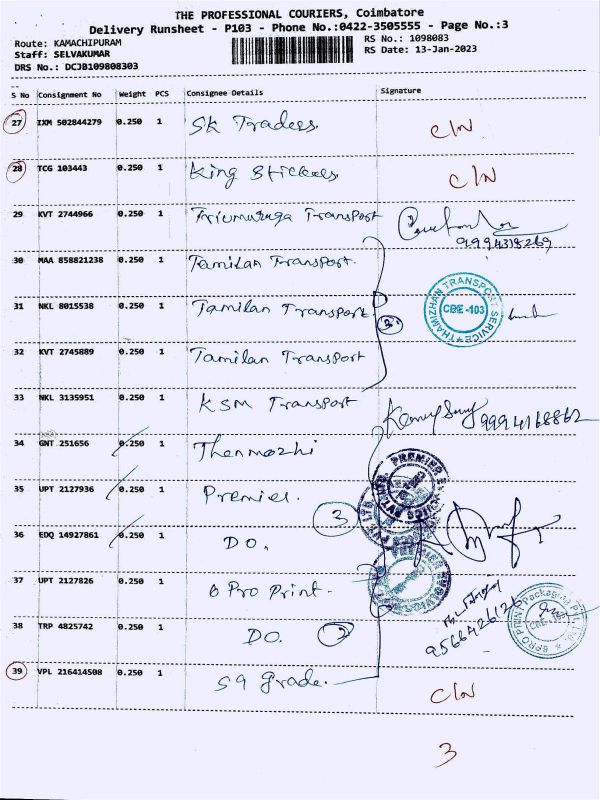 THE PROFESSIONAL COURIERS, Coimbatore
Delivery Runsheet - P103 - Phone No.:0422-3505555 - Page No.:3
Route: KAMACHIPURAM RS No.: 1098083
Staff: SELVAKUMAR RS Date: 13-Jan-2023
DRS No.: DCJB109808303
S No Consignment No Weight PCS Consignee Details Signature
27 IXM 502844279 0.250 1 SK Traders. C/N
28 TCG 103443 0.250 1 King Stickers C/N
29 KVT 2744966 0.250 1 Trimuruga Transport
9994318269
30 MAA 858821238 0.250 1 Tamilan Transport.
31 NKL 8015538 0.250 1 Tamilan Transport 3 THAMIZHAN TRANSPORT SERVICE CBE-103
32 KVT 2745889 0.250 1 Tamilan Transport
33 NKL 3135951 0.250 1 KSM Transport 9994168862
34 GNT 251656 0.250 1 Thenmozhi
35 UPT 2127936 0.250 1 Premier. 3 PREMIER
36 EDQ 14927861 0.250 1 DO.
37 UPT 2127826 0.250 1 6 Pro Print.
9566426126
38 TRP 4825742 0.250 1 DO. 2
39 VPL 216414508 0.250 1 S9 grade. C/N
3